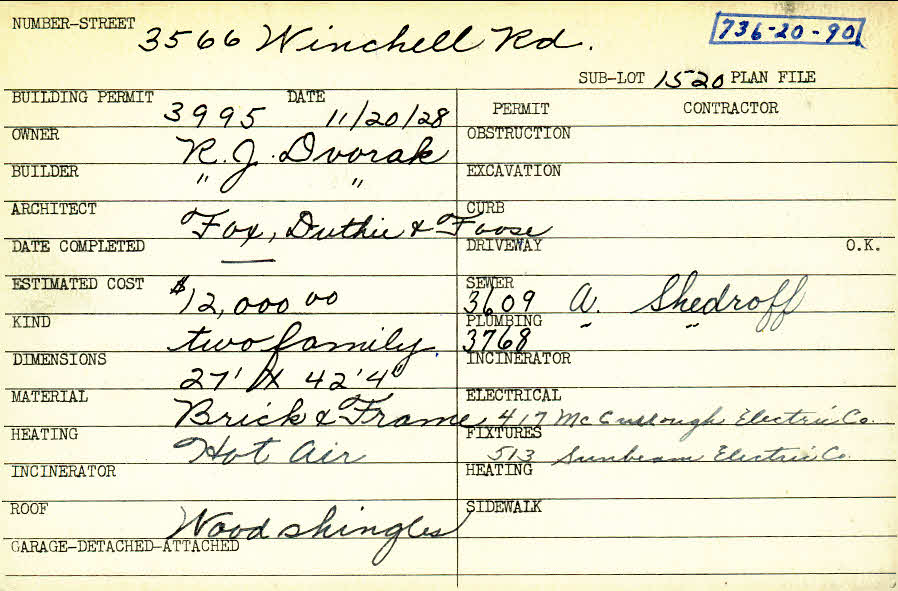 NUMBER-STREET 3566 Winchell Rd. 736-20-90
SUB-LOT 1520 PLAN FILE
BUILDING PERMIT 3995 DATE 11/20/28 PERMIT CONTRACTOR
OWNER R. J. Dvorak OBSTRUCTION
BUILDER " " EXCAVATION
ARCHITECT Fox, Duthie & Foose CURB
DATE COMPLETED — DRIVEWAY O.K.
ESTIMATED COST $12,000 00 SEWER 3609 A. Shedroff
KIND two family. PLUMBING 3768 " "
DIMENSIONS 27' X 42'4" INCINERATOR
MATERIAL Brick & Frame ELECTRICAL 417 McCullough Electric Co.
HEATING Hot Air FIXTURES 513 Sunbeam Electric Co.
INCINERATOR HEATING
ROOF Wood shingles SIDEWALK
GARAGE-DETACHED-ATTACHED